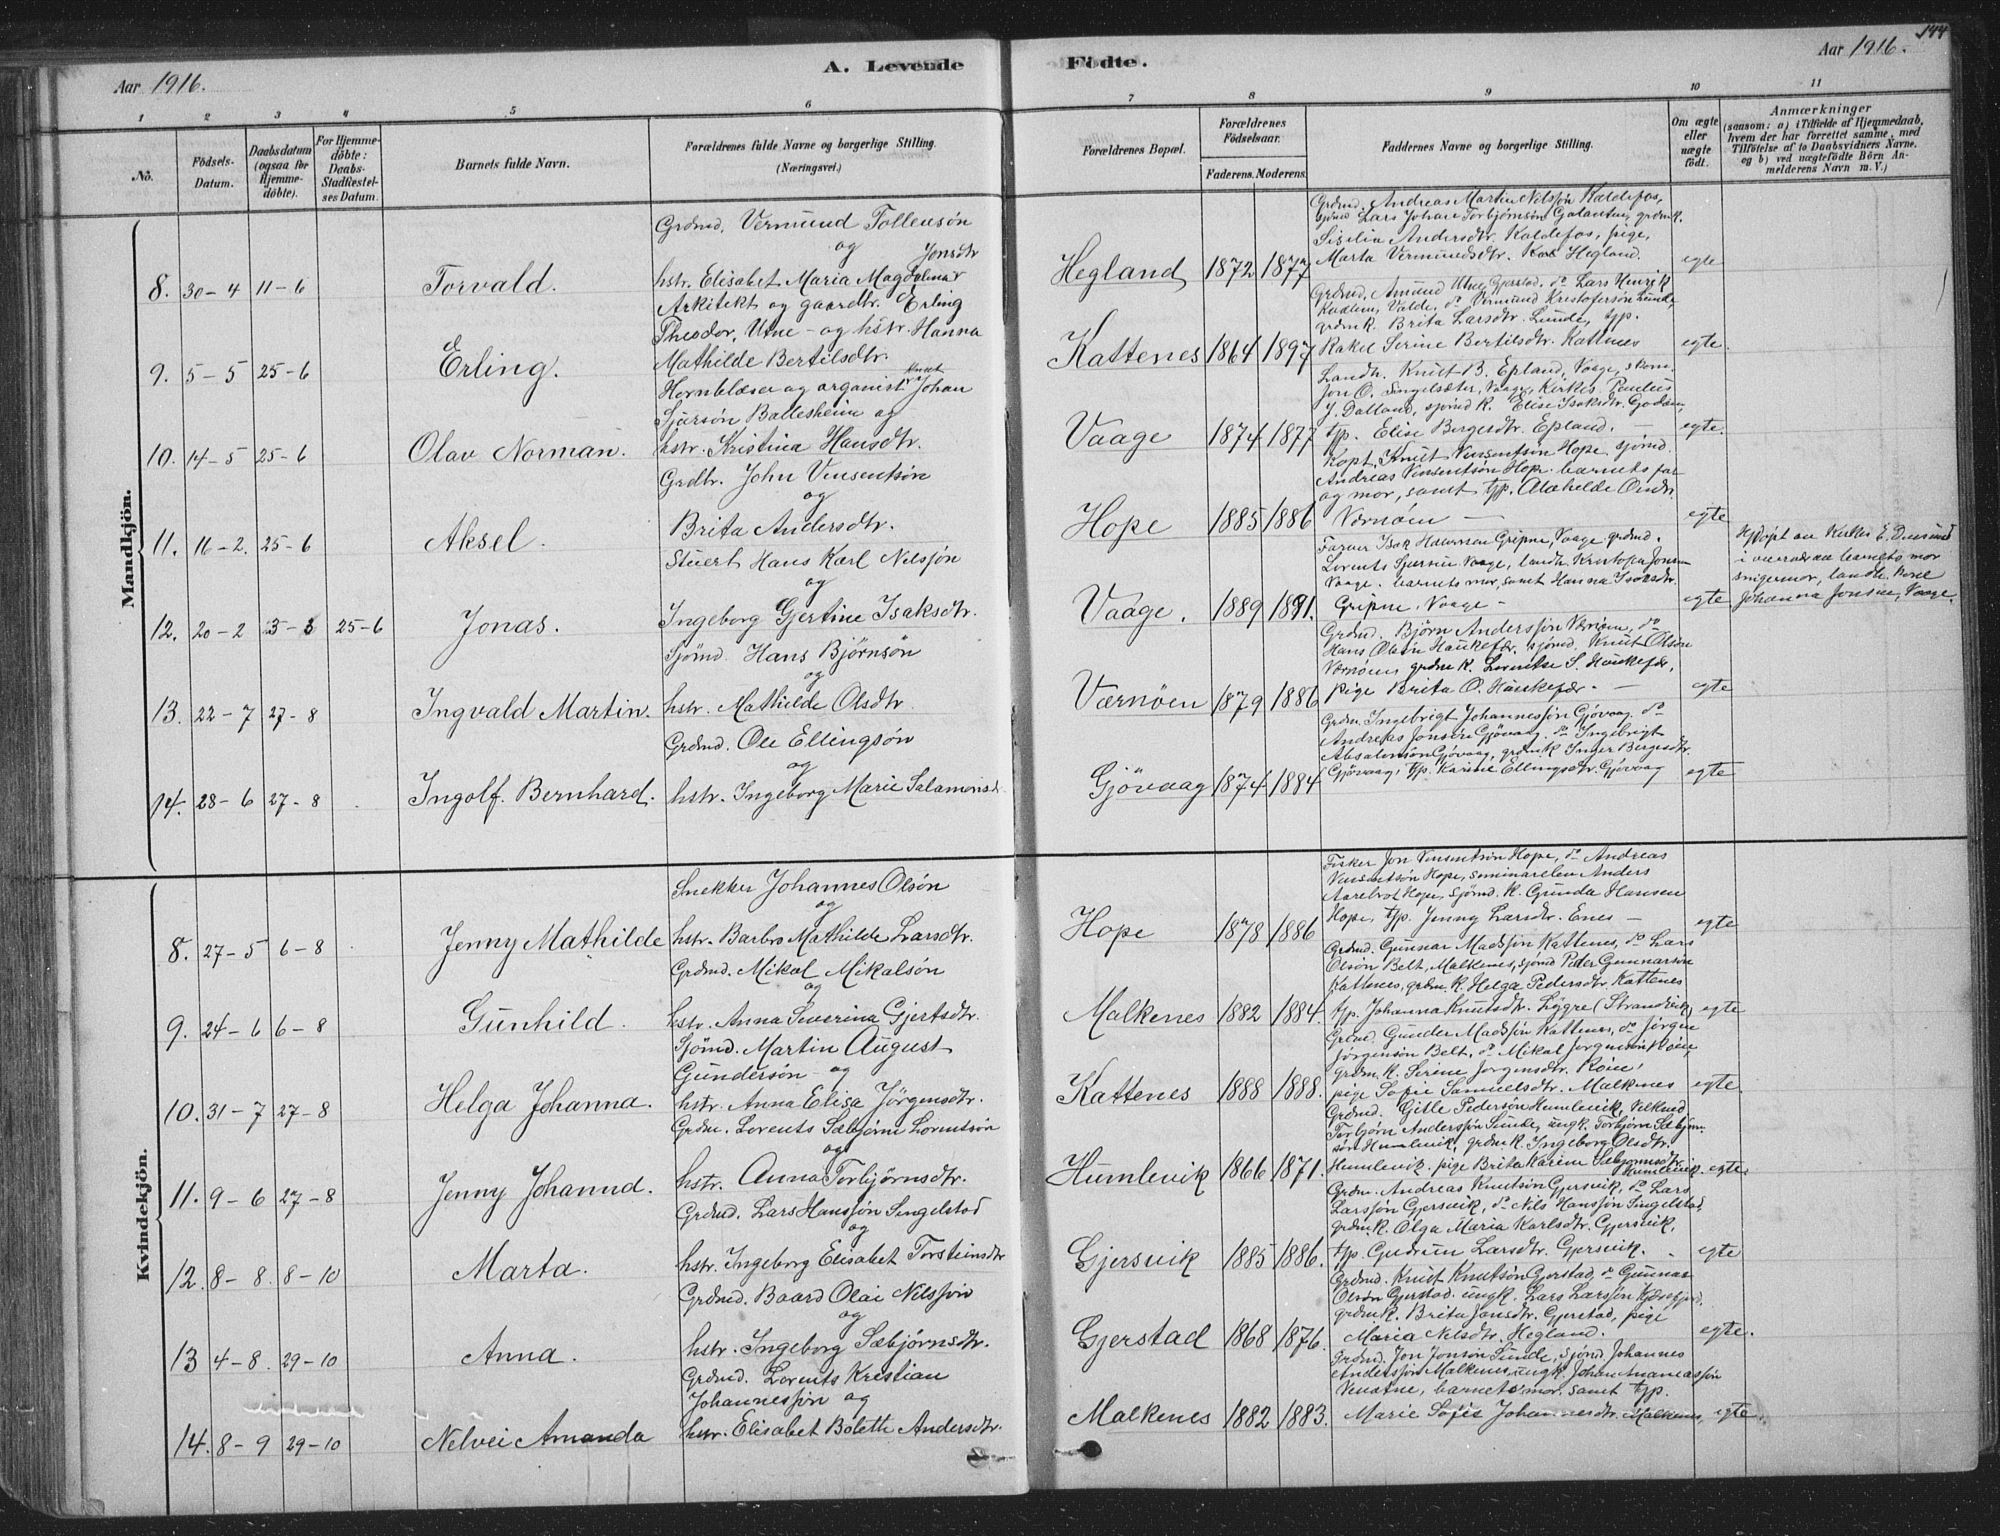 Aar 1916.
A. Levende Födte.
Aar 1916.
144
1 2 3 4 5 6 7 8 9 10 11
No.
Födsels-Datum.
Daabsdatum (ogsaa for Hjemme-döbte).
For Hjemme-döbte: Daabs-Stadfæstel-ses Datum.
Barnets fulde Navn.
Forældrenes fulde Navne og borgerlige Stilling. (Næringsvei.)
Forældrenes Bopæl.
Forældrenes Födselsaar.
Faderens. Moderens.
Faddernes Navne og borgerlige Stilling.
Om ægte eller uægte födt.
Anmærkninger
(saasom: a) i Tilfælde af Hjemmedaab, hvem der har forrettet samme, med Tilföielse af to Daabsvidners Navne. og b) ved uægtefödte Börn An-melderens Navn m. V.)
Mandkjön.
8. 30-4 11-6 Torvald.
Grdmd. Vermund Tollensön
og Jonsdtr
hstr. Elisabet Maria Magdalena
Hegland 1872 1877 egte
Grdmd. Andreas Martin Nilssön Kaldefos,
Grdmd Lars Johan Torbjörnsön grdmk.
Sisilia Andersdtr. Kaldefos, pige,
Marta Vermundsdtr. Hegland.
9. 5-5 25-6 Erling.
Arkitekt og gaardbr. Erling
Theodor Utne - og hstr. Hanna
Mathilde Bertilsdtr.
Kattenes 1864 1897 egte.
Grdmd. Amund Gjerstad, do Lars Henrik
Valde, do Vermund Kristofersön Lunde,
grdmk. Brita Larsdtr. Lunde, tjp.
Rakel Serine Bertilsdtr. Kattenes
10. 14-5 25-6 Olav Norman.
Hornblæser og organist Knut Johan
Sjursön Ballesheim og
hstr. Kristina Hansdtr.
Vaage 1874 1877 egte.
Landh. Knut B. Epland, Vaage, skom.
Jon O. Singelsæter, Vaage, Kirkes. Paulus
J. Dalland, sjömd k. Elise Isaksdtr.
tjp. Elise Bergesdtr. Epland. -
11. 16-2. 25-6 Aksel.
Grdbr. John Vinsentsön
og
Brita Andersdtr.
Hope 1885 1886 egte
Kapt. Knut Vinsentsön Hope, sjömd.
Andreas Vinsentsön Hope. barnets far
og mor, samt tjp. Olsdtr
Værnöen -
12. 20-2 25-6 Jonas.
Stuert Hans Karl Nilssön
og
Ingeborg Gjertine Isaksdtr.
Vaage. 1889 1891. egte
Farver Isak Gripne, Vaage grdmd.
Lorents Vaage, landh. Kristofer
Vaage. barnets mor, samt Hanna Isaksdtr.
Gripne, Vaage -
Hjdöpt av Kirkes E.
i overvær av barnets mor
svigermor, landh. kone
Johanna Vaage.
13. 22-7 27-8 Ingvald Martin.
Sjömd. Hans Björnsön
og
hstr. Mathilde Olsdtr.
Værnöen 1879 1886 egte
Grdmd. Björn Anderssön Værnöen, do
Hans Olsen Haukefær. sjömd. Knut Olsön
Værnöen, grdm k. S. Haukefær,
pige Brita O. Haukefær. -
14. 28-6 27-8 Ingolf Bernhard.
Grdmd. Ole Ellingsön
og
hstr. Ingeborg Marie Salamonsd.
Gjövaag 1874 1884 egte
Grdm. Ingebrigt Johannessön Gjövaag. do
Andreas Jonsön Gjövaag, do Ingebrigt
Absalonsön Gjövaag, grdmk Inger Bergesdtr.
Gjövaag, tjp. Karine Ellingsdtr. Gjövaag
Kvindekjön.
8. 27-5 6-8 Jenny Mathilde
Snekker Johannes Olsön
og
hstr. Barbro Mathilde Larsdtr.
Hope 1878 1886 egte
Fisker Jon Vinsentsön Hope, do Andreas
Vinsentsön Hope, seminarelev Anders
Aarebrot Hope, sjömd. k. Gunda Hansen
Hope, tjp. Jenny Larsdtr. Enes -
9. 24-6 6-8 Gunhild.
Grdmd. Mikal Mikalsön
og
hstr. Anna Severina Gjertsdtr.
Malkenes 1882 1884. egte
Grdmd. Gunnar Madssön Kattenes, do Lars
Olsön Belt, Malkenes, sjömd Peder Gunnarsön
Kattenes, grdm. k. Helga Pedersdtr. Kattenes
tjp. Johanna Knutsdtr. Lygre (Strandvik)
10. 31-7 27-8 Helga Johanna.
Sjömd. Martin August
Gundersön - og
hstr. Anna Elisa Jörgensdtr.
Kattenes 1888 1888. egte.
Grdmd. Gunder Madssön Kattenes, do Jörgen
Jörgensön Belt, do Mikal Jorgensön Röen,
grdm. k. Serine Jorgensdtr. Röen,
pige Sofie Samuelsdtr. Malkenes
11. 9-6 27-8 Jenny Johanna.
Grdm. Lorents Sæbjörn Lorentsön
og
hstr. Anna Torbjörnsdtr.
Humlevik 1866 1871. egte.
Grdmd. Gitle Pedersön Humlevik,
Torbjörn Anderssön Sunde, ungk. Torbjörn Sæbjörn-
sön Humlevik, grdm k. Ingeborg Olsdtr.
Humlevik, pige Brita Karine Sæbjörnsdtr. Humlevik
12. 8-8. 8-10 Marta.
Grdmd. Lars Hanssön Singelstad
og
hstr. Ingeborg Elisabet Torsteinsdtr
Gjersvik 1885 1886. egte
Grdm. Andreas Knutsön Gjersvik, do Lars
Larssön Gjersvik, do Nils Hanssön Singelstad,
grdmk. Olga Maria Karlsdtr. Gjersvik,
tjp. Gudrun Larsdtr. Gjersvik. -
13 4-8. 29-10 Anna.
Grdmd. Baard Olai Nilssön
og
hstr. Ingeborg Sæbjörnsdtr.
Gjerstad 1868 1876. egte.
Grdmd. Knut Knutsön Gjerstad, do Gunnar
Olsön Gjerstad. ungk. Lars Larssön
grdmk. Brita Jonsdtr. Gjerstad, pige
Maria Nilsdtr. Hegland.
14. 8-9 29-10 Nelvei Amanda
Grdmd. Lorents Kristian
Johannessön og
hstr. Elisabet Bolette Andersdtr.
Malkenes 1882 1883. egte.
Grdmd. Jon Jonsön Sunde, sjömd. Johannes
Anderssön Malkenes, ungk. Johan Andreassön
Venatne, barnets mor, samt tjp.
Marie Sofie Johannesdtr. Malkenes,